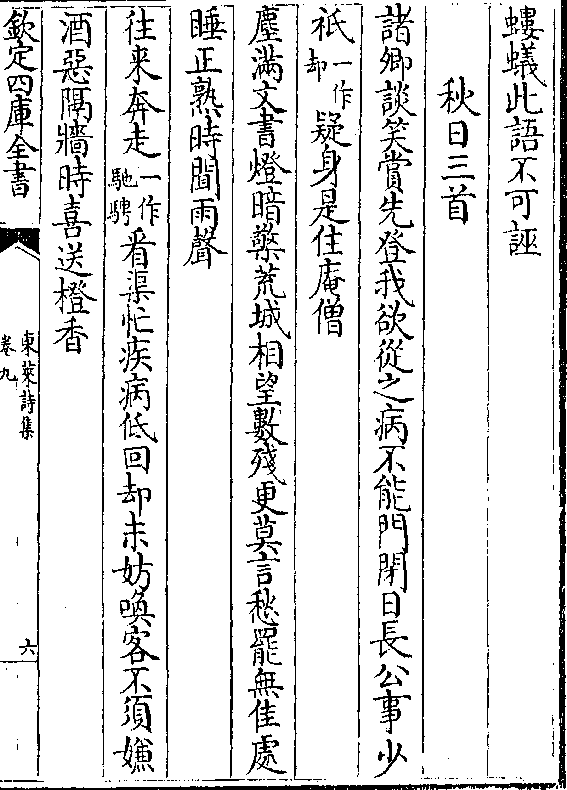 螻蟻此語不可誣
秋日三首
諸卿談笑賞先登我欲從之病不能門閉日長公事少
祇一作却疑身是住庵僧
塵滿文書燈暗檠荒城相望數殘更莫言愁罷無佳處
睡正熟時聞雨聲
往来奔走一作馳騁看渠忙疾病低回却未妨喚客不須嫌
酒惡隔牆時喜送橙香
欽定四庫全書
東萊詩集
卷九
六